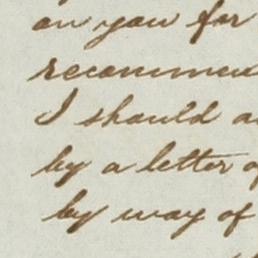 on you for
recommen
I should a
by a letter o
by way of